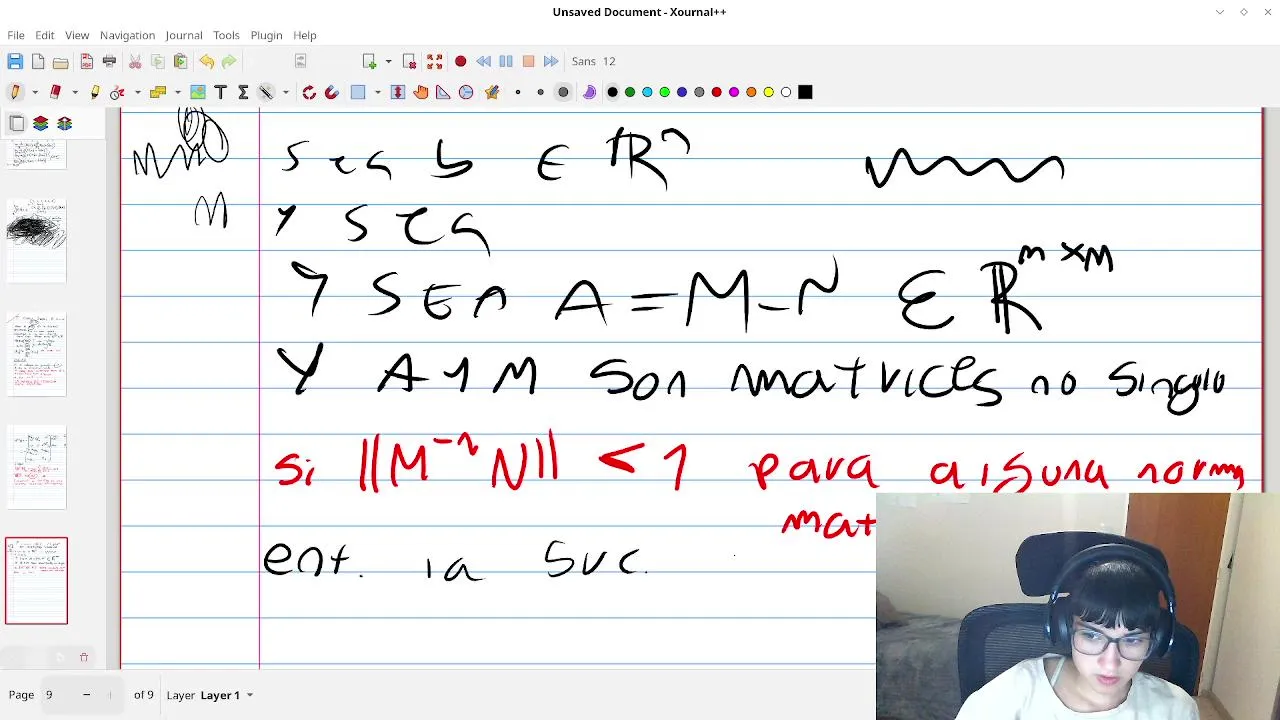 Unsaved Document - Xournal++
File Edit View Navigation Journal Tools Plugin Help
Sans 12
sea b ∈ ℝⁿ
M y sea
y sea A = M - N ∈ ℝ^{n×n}
y A y M son matrices no singula
si ||M⁻¹N|| < 1 para alguna norma
mat
ent. la suc.
Page 9 of 9 Layer Layer 1